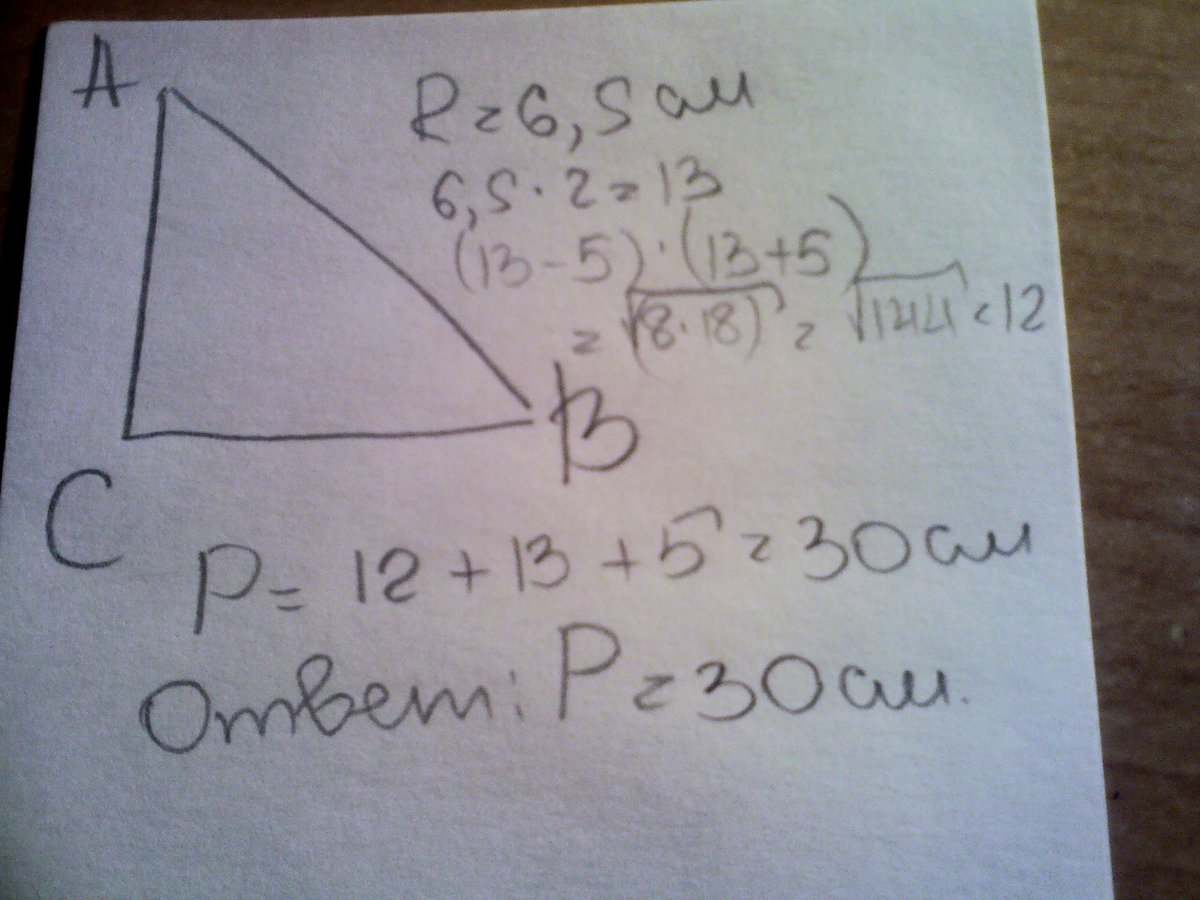 A
R = 6,5 см
6,5 · 2 = 13
(13 - 5) · (13 + 5)
= √(8 · 18) = √144 = 12
B
C
P = 12 + 13 + 5 = 30 см
Ответ: P = 30 см.